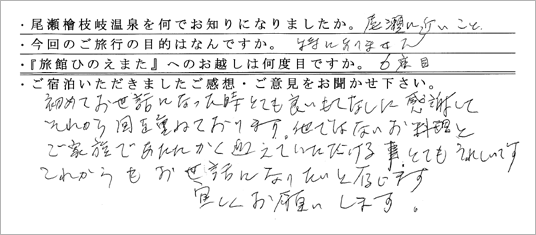 ・尾瀬檜枝岐温泉を何でお知りになりましたか。尾瀬に行くこと
・今回のご旅行の目的はなんですか。特にありません
・『旅館ひのえまた』へのお越しは何度目ですか。6度目
・ご宿泊いただきましたご感想・ご意見をお聞かせ下さい。
初めてお世話になった時とても良いもてなしに感謝して
それから回を重ねております。他ではないお料理と
ご家族であたたかく迎えていただける事とてもうれしいです
これからもお世話になりたいと存じます
宜しくお願いします。